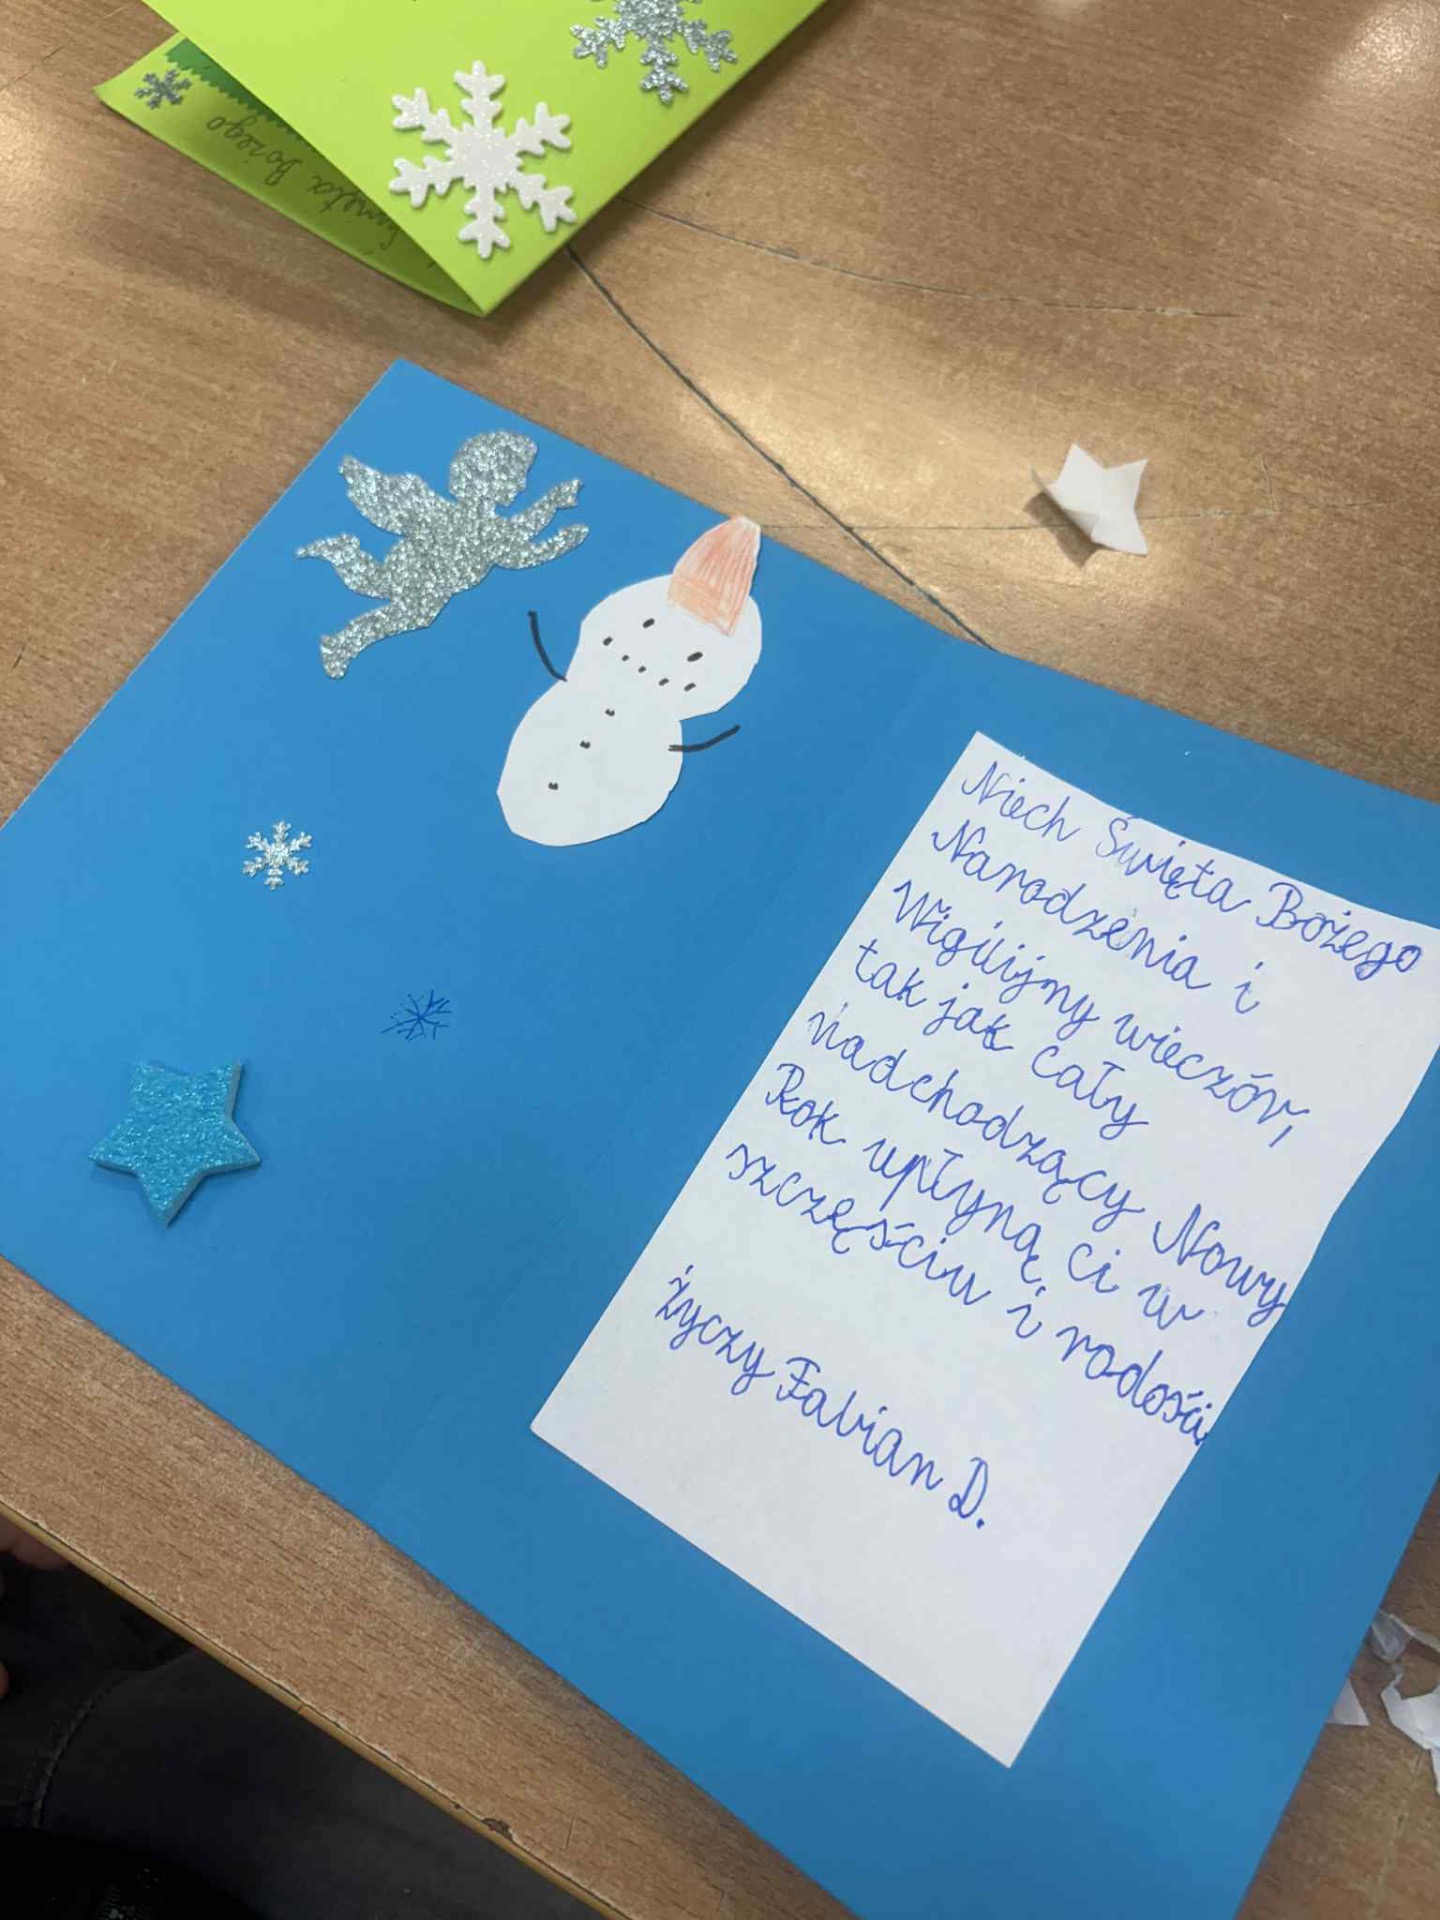 Święta Bożego
Niech Święta Bożego
Narodzenia i
Wigilijny wieczór,
tak jak cały
nadchodzący Nowy
Rok upłyną Ci w
szczęściu i radości.
życzy Fabian D.